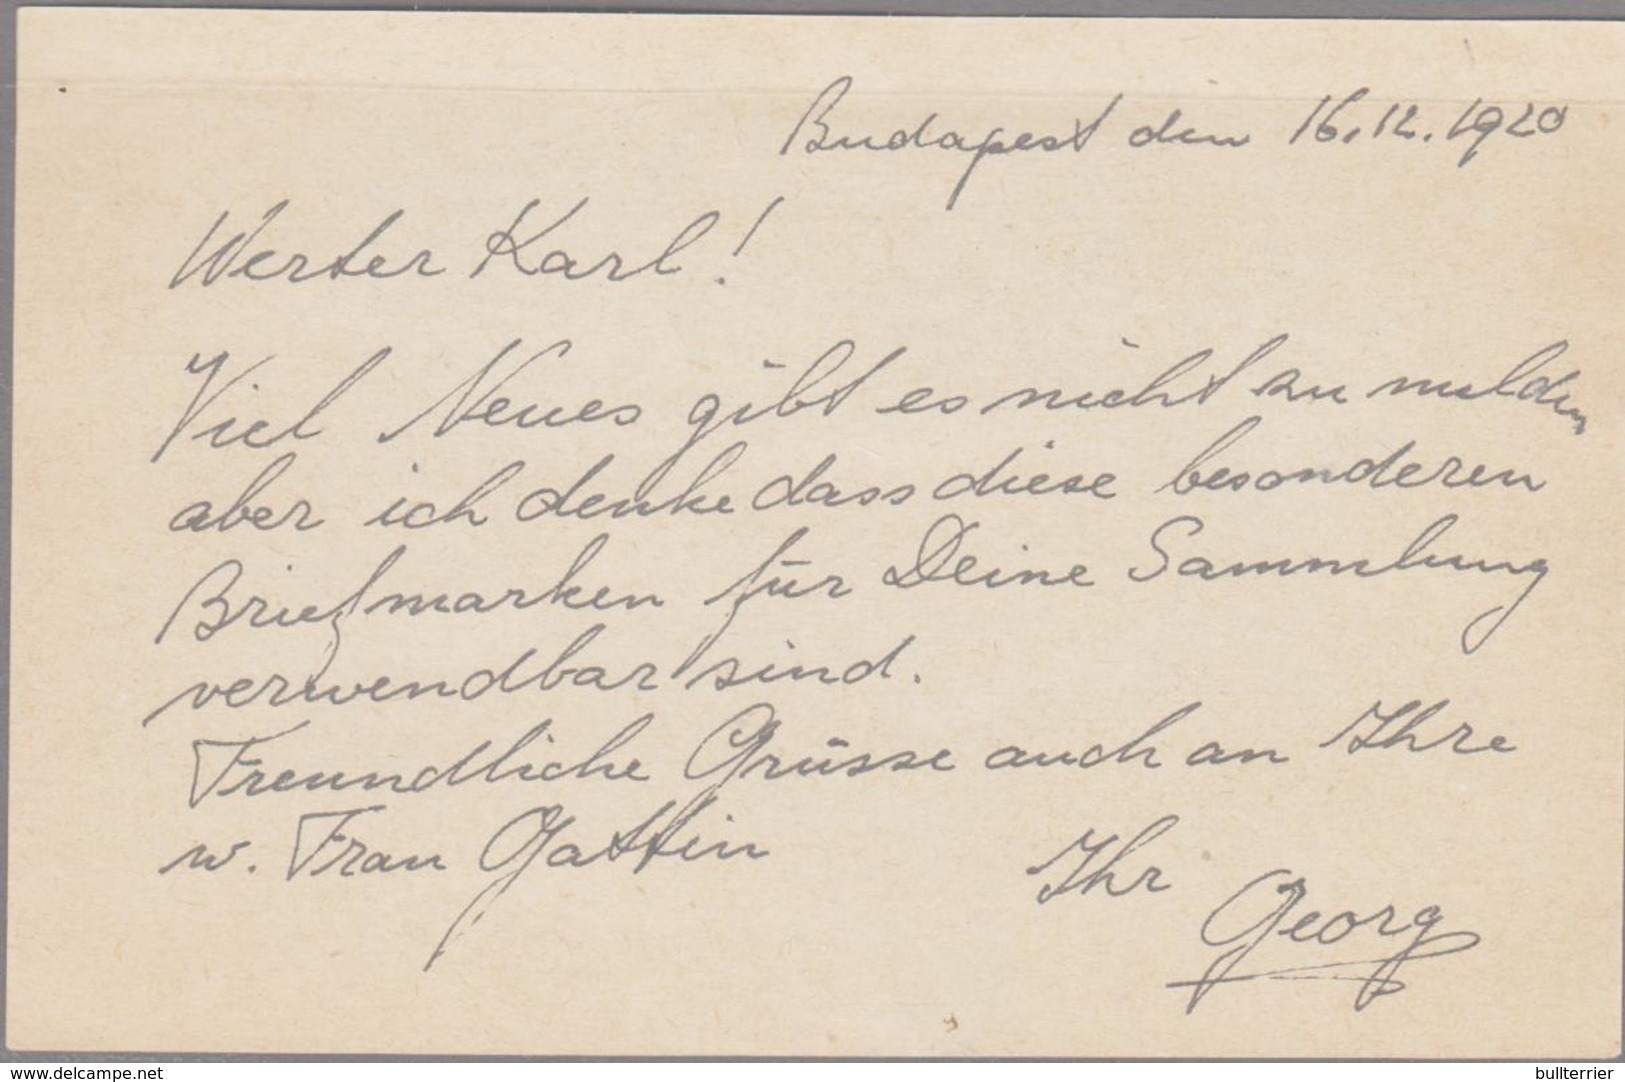 Budapest den 16.12.1920
Werter Karl!
Viel Neues gibt es nicht zu melden
aber ich denke dass diese besonderen
Briefmarken für Deine Sammlung
verwendbar sind.
Freundliche Grüsse auch an Ihre
w. Frau Gattin
Ihr
Georg
www.delcampe.net
bullterrier